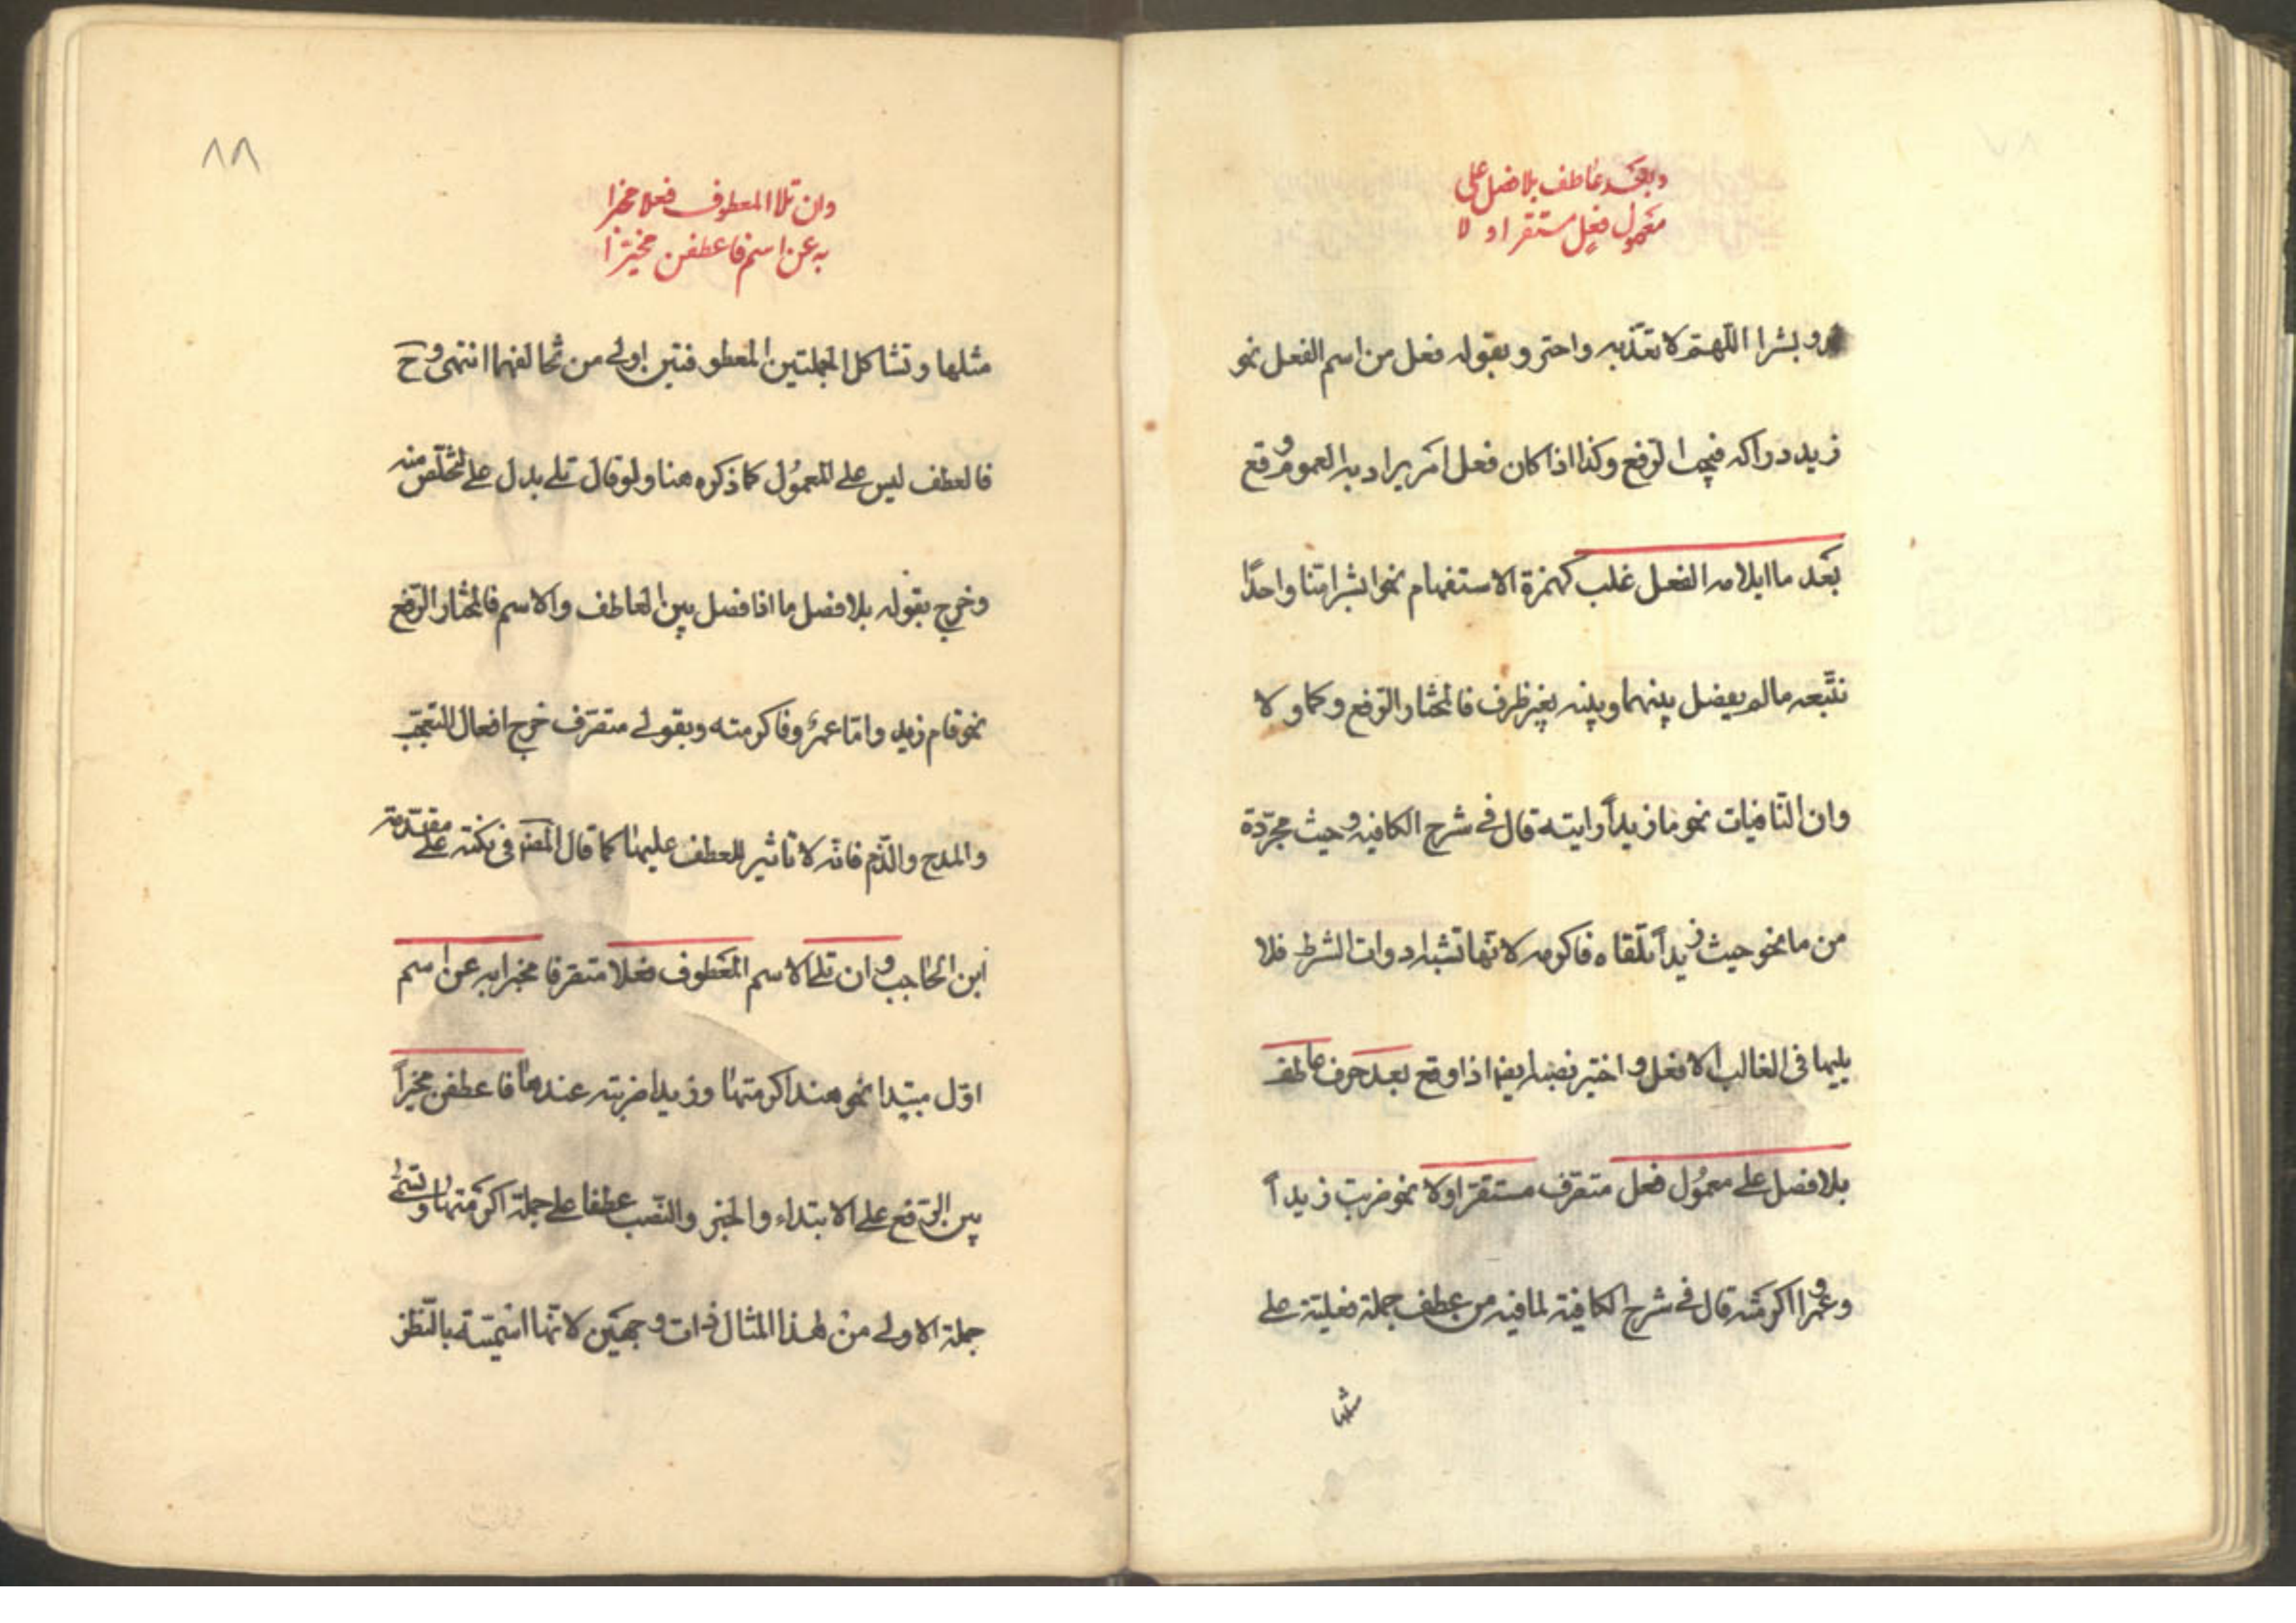 وبعد عاطف بلا فصل على
معمول فعل مستقر اولا
و بشرا اللهم لا تعذبه واحترز بقوله فعل من اسم الفعل نحو
زيد دراكه فيجب الرفع وكذا اذا كان فعل امر يراد به العموم وقع
بعد ما ايلاءه الفعل غلب كهمزة الاستفهام نحو ابشرا منا واحدًا
نتبعه مالم يفصل بينهما وبينه بغير ظرف فالمختار الرفع وكما ولا
وان النافيات نحو ما زيداً رايته قال في شرح الكافيه وحيث مجردة
من ما نحو حيث زيداً تلقاه فاكرمه لانها تشبه ادوات الشرط فلا
يليها فى الغالب الا فعل و اختير نصبه ايضا اذا وقع بعد حرف عاطف
بلا فصل على معمول فعل متصرف مستقر اولا نحو ضربت زيداً
وعمرا اكرمته قال في شرح الكافية لما فيه من عطف جملة فعلية على
مثلها
٨٨
وان تلا المعطوف فعلا مخبرا
به عن اسم فاعطفن مخيرا
مثلها وتشاكل الجملتين المعطوفتين اولى من تخالفهما انتهى وح
فالعطف ليس على المعمول كما ذكره هنا ولو قال تلى بدل على لتخلص منه
وخرج بقوله بلا فصل ما اذا فصل بين العاطف والاسم فالمختار الرفع
نحو قام زيد واما عمرو فاكرمته وبقولى متصرف خرج افعال التعجب
والمدح والذم فانه لا تاثير للعطف عليها كما قال المصنف فى نكته على مقدمة
ابن الحاجب وان تلى الاسم المعطوف فعلا متصرفا مخبرا به عن اسم
اول مبتدا نحو هند اكرمتها وزيدا ضربته عندها فاعطفن مخيراً
بين الرفع على الابتداء والخبر والنصب عطفا على جملة اكرمتها وتسمى
جملة الاولى من هذا المثال ذات وجهين لانها اسمية بالنظر